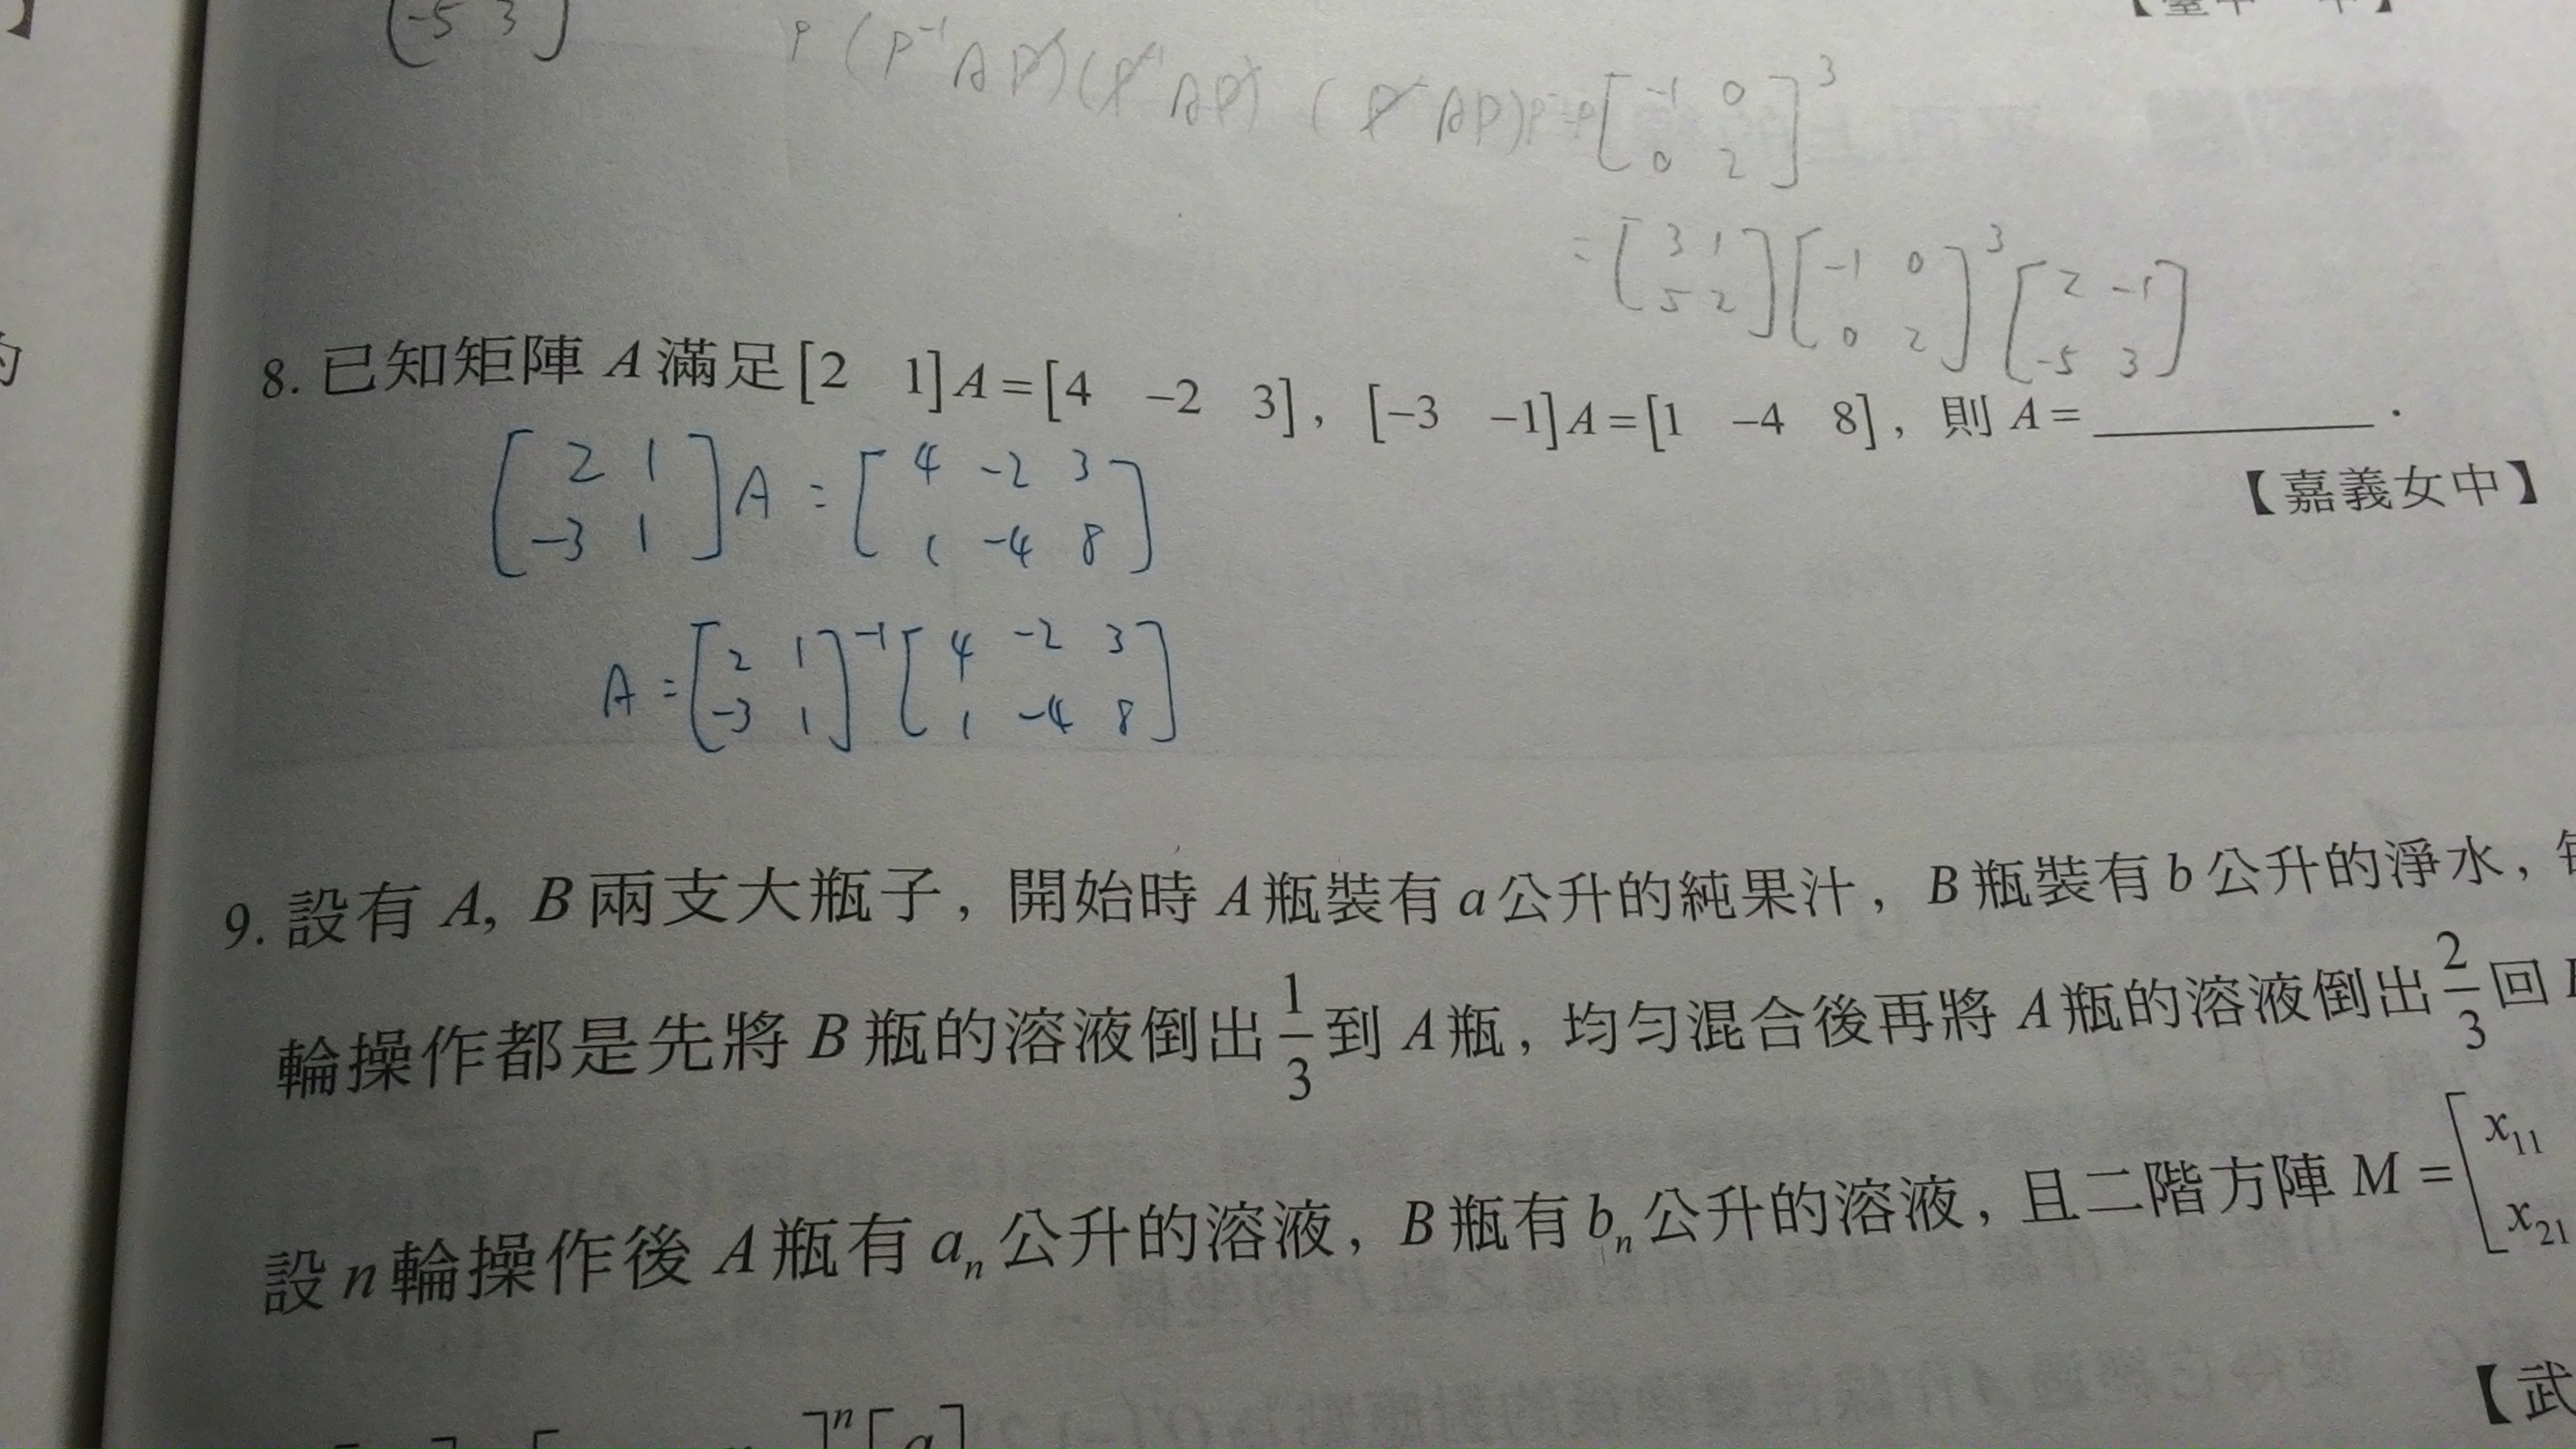 (-5 3)
P(P⁻¹AP)(P⁻¹AP)(P⁻¹AP)P⁻¹=P[-1 0; 0 2]³
=[3 1; 5 2][-1 0; 0 2]³[2 -1; -5 3]
8. 已知矩陣 A 滿足[2 1]A=[4 −2 3], [−3 −1]A=[1 −4 8], 則 A=________.
【嘉義女中】
[2 1; -3 1]A=[4 -2 3; 1 -4 8]
A=[2 1; -3 1]⁻¹[4 -2 3; 1 -4 8]
9. 設有 A, B 兩支大瓶子, 開始時 A 瓶裝有 a 公升的純果汁, B 瓶裝有 b 公升的淨水,
輪操作都是先將 B 瓶的溶液倒出 1/3 到 A 瓶, 均勻混合後再將 A 瓶的溶液倒出 2/3 回
設 n 輪操作後 A 瓶有 aₙ 公升的溶液, B 瓶有 bₙ 公升的溶液, 且二階方陣 M=[x₁₁; x₂₁
【武
]ⁿ[a]